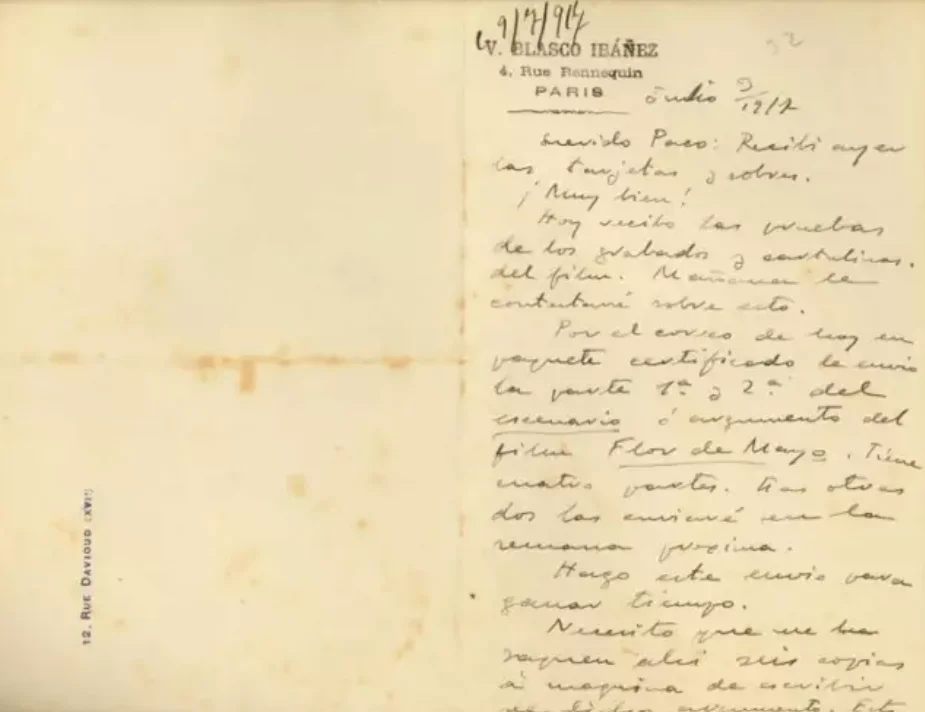 9/7/917
V. BLASCO IBÁÑEZ
4, Rue Rennequin
PARIS
32
Julio 9/1917
Querido Paco: Recibí ayer
las tarjetas y sobres.
¡Muy bien!
Hoy recibo las pruebas
de los grabados y cartulinas.
del film. Mañana le
contestaré sobre esto.
Por el correo de hoy en
paquete certificado le envio
la parte 1ª y 2ª del
escenario ó argumento del
film Flor de Mayo. Tiene
cuatro partes. Las otras
dos las enviaré en la
semana proxima.
Hago este envio para
ganar tiempo.
Necesito que me ha
saquen ahi seis copias
á maquina de escribir
de dicho argumento. Este
12, RUE DAVIOUD (XVIe)